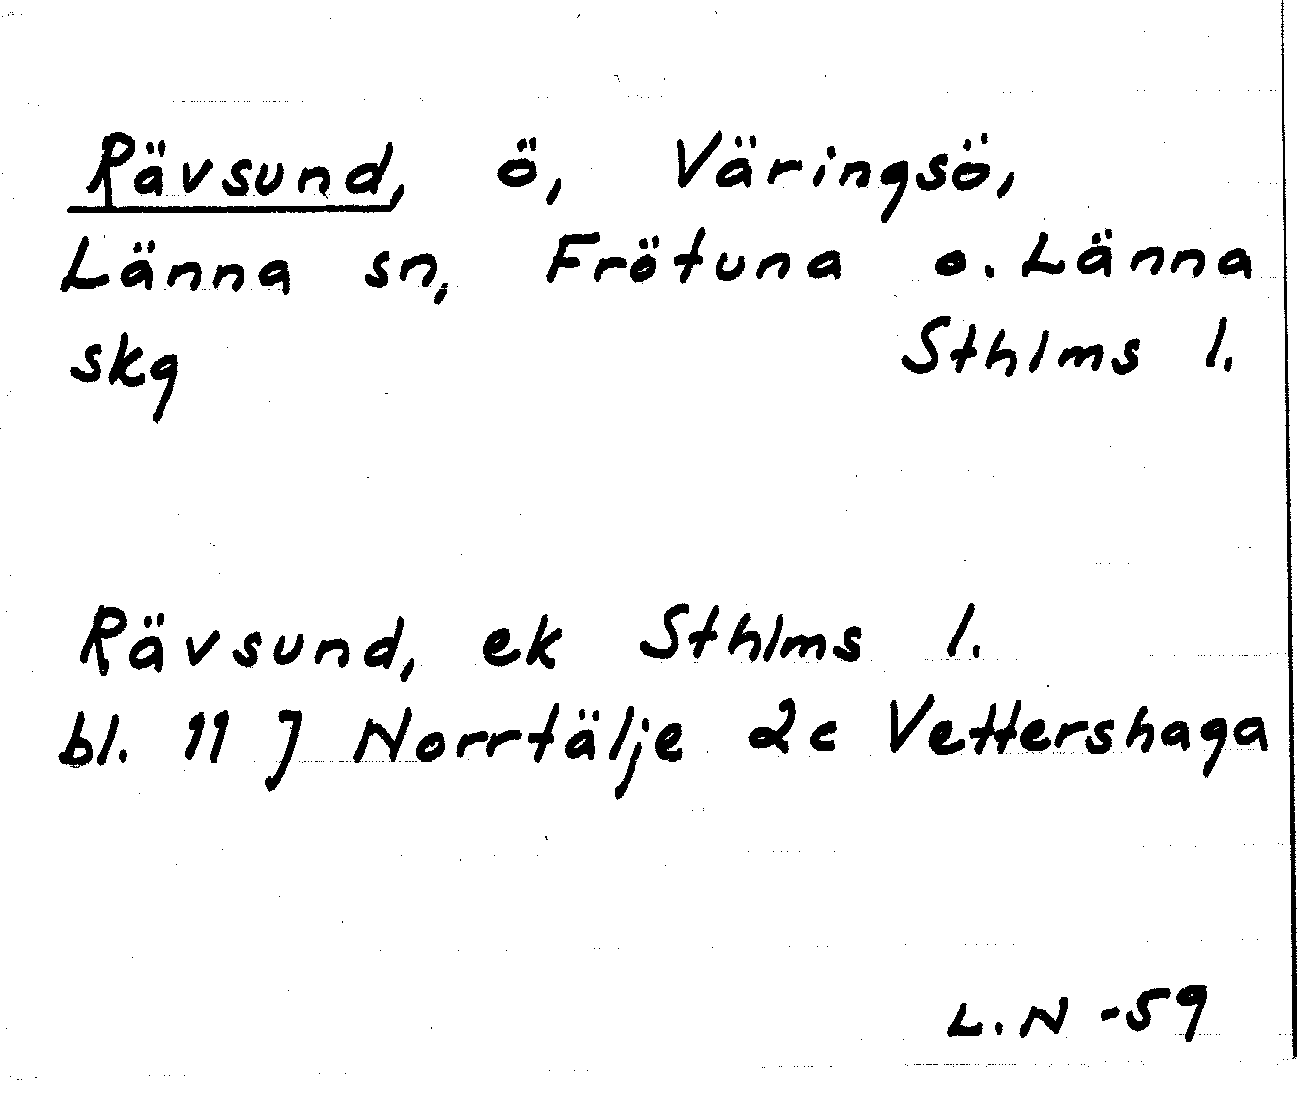 Rävsund, ö, Väringsö,
Länna sn, Frötuna o. Länna
skg Sthlms l.
Rävsund, ek Sthlms l.
bl. 11 J Norrtälje 2c Vettershaga
L.N -59